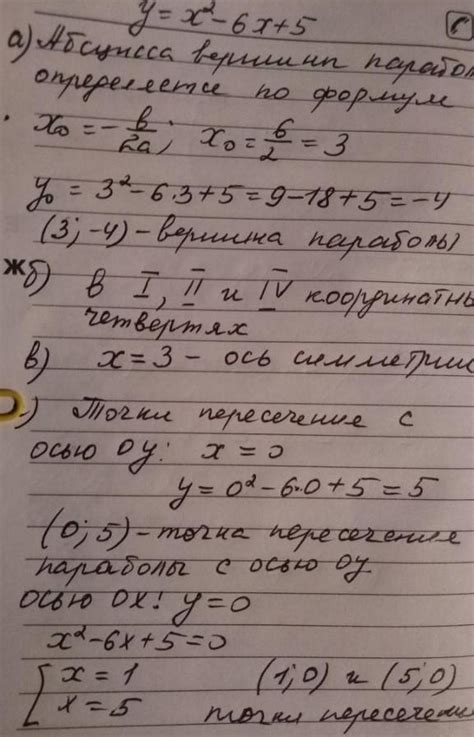 y=x²-6x+5
а) Абсцисса вершины парабол
определяется по формул
x₀ = -b/2a; x₀ = 6/2 = 3
y₀ = 3²-6·3+5=9-18+5=-4
(3;-4)-вершина параболы
ж б) в I, II и IV координатны
четвертях
в) x=3 - ось симметрии
) Точки пересечение с
осью ОУ: x=0
y=0²-6·0+5=5
(0;5)-точка пересечения
параболы с осью ОУ
осью ОХ: y=0
x²-6x+5=0
[x=1 (1;0) и (5;0)
x=5 точки пересечени